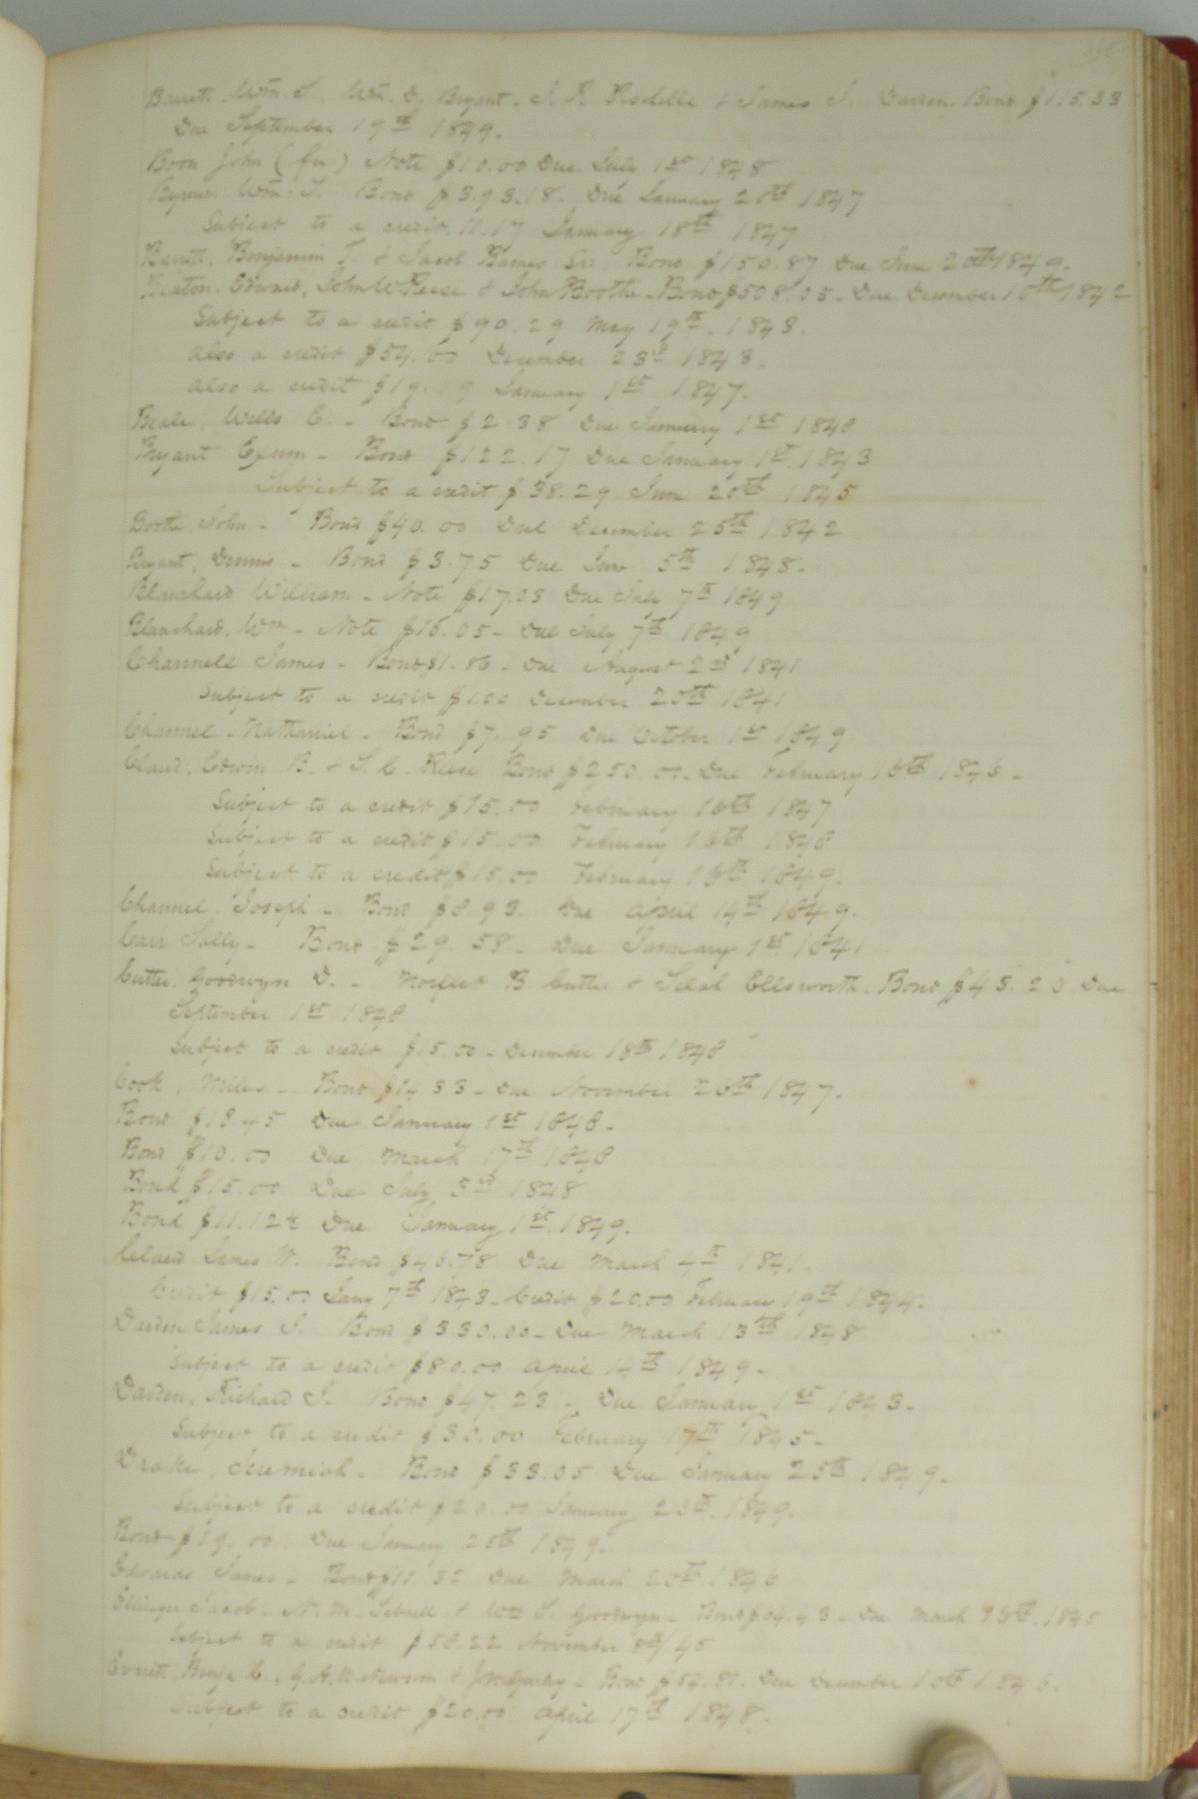 Barrett Wm. T. Wm. D. Bryant. J. R. Rochelle & James J. Darden. Bond $1.5.33
Due September 19th 1849.
Boon John (fn) Note $10.00 Due July 1st 1848
Wm. T. Bond $393.18. Due January 20th 1847
Subject to a credit 11.17 January 18th 1847
Barrett, Benjamin T. & Jacob Barnes Sr. Bond $150.87 Due June 20th 1849.
Edward, John W. Reese & John Boothe. Bond $508.05. Due December 10th 1842
Subject to a credit $90.29 May 19th. 1843.
Also a credit $54.00 December 23d 1843.
Also a credit $19. January 1st 1847.
Beale, Wills C. - Bond $2.38 Due January 1st 1848
Bryant Exum - Bond $122.17 Due January 1st. 1843
Subject to a credit $38.29 June 20th 1845
Boothe, John - Bond $40.00 Due December 25th 1842
Bryant, Dennis - Bond $3.75 Due June 5th 1848.
Blanchard William - Note $17.03 Due July 7th 1849
Blanchard, Wm - Note $16.05 - Due July 7th 1849
Channell James - Bond $1.86 - Due August 2nd 1841
Subject to a credit $1.00 December 20th 1841
Channel - Nathaniel - Bond $7.95 Due October 1st 1849
Claud, Edwin B. & S. C. Reese Bond $250.00. Due February 16th 1846 -
Subject to a credit $15.00 February 16th 1847
Subject to a credit $15.00 February 16th 1848
Subject to a credit $15.00 February 16th 1849.
Channel, Joseph - Bond $8.93. Due April 14th 1849.
Carr Sally - Bond $29.58 - Due January 1st 1841
Cutler, Goodwyn D. - Norflet B Cutler & Ellsworth. Bond $43.20 Due
September 1st 1848
Subject to a credit $15.00 - December 18th 1848
Cook, Miles - Bond $14.33 - Due November 26th 1847.
Bond $18.45 Due January 1st 1848 -
Bond $10.00 Due March 17th 1848
Bond $15.00 Due July 3rd 1848
Bond $11.12½ Due January 1st. 1849.
Claud James W. Bond $46.78 Due March 4th 1841.
Credit $15.00 Jany 7th 1843 - Credit $20.00 February 19th 1844.
Darden James J. Bond $330.00 - Due March 13th 1848
Subject to a credit $80.00 April 14th 1849 -
Darden, Richard J - Bond $47.23 - Due January 1st 1843 -
Subject to a credit $30.00 February 17th 1845 -
Drake, Jeremiah - Bond $33.05 Due January 25th 1849.
Subject to a credit $20.00 January 20th. 1849.
Bond $19.00. Due January 20th 1849.
Edwards James - Bond $11.32 Due March 20th 1846
Jacob - N. M. Sebrell & Wm S. Goodwyn - Bond $94.43 - Due March 26th. 1845
Subject to a credit $58.22 November 8th/45
Everett, Benja C, G. A. W. Newsom & - Bond $54.80. Due December 10th 1846.
Subject to a credit $20.00 April 17th 1848.